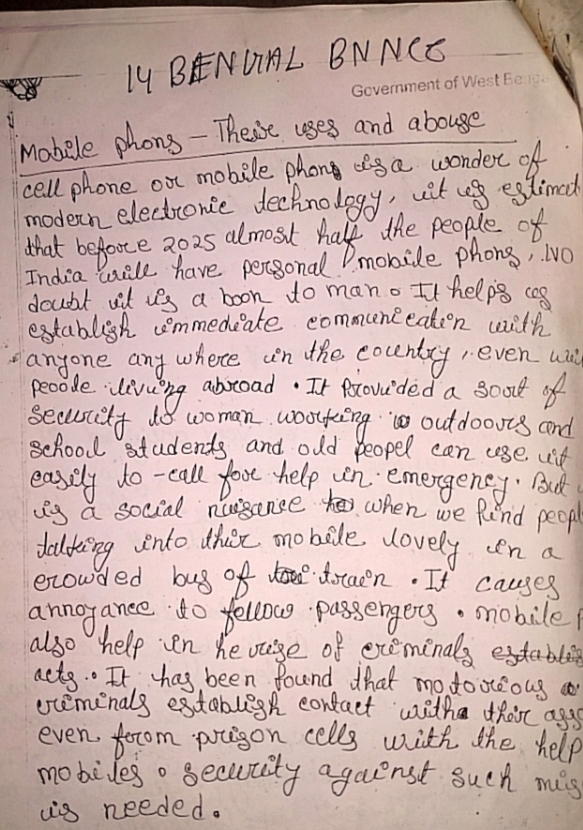 14 BENGAL BN NCC
Government of West Benga
Mobile phons – Their uses and abouse
cell phone or mobile phons is a wonder of
modern electronic technology, it is estimet
that before 2025 almost half the people of
India will have personal mobile phons, . NO
doubt it is a boon to man. It helps us
establish immediate communication with
anyone any where in the country, even wit
peoode living abroad . It Provided a sort of
security to woman working outdoors and
school students and old peopel can use it
easily to -call for help in emergency. But
is a social nuisance when we find peopl
talking into their mobile lovely in a
erowded bus of train . It causes
annoyance to fellow passengers . mobile p
also help in he rise of criminals establis
acts . It has been found that motorious
criminals establish contact with their ass
even from prison cells with the help
mobiles . security against such mis
is needed.